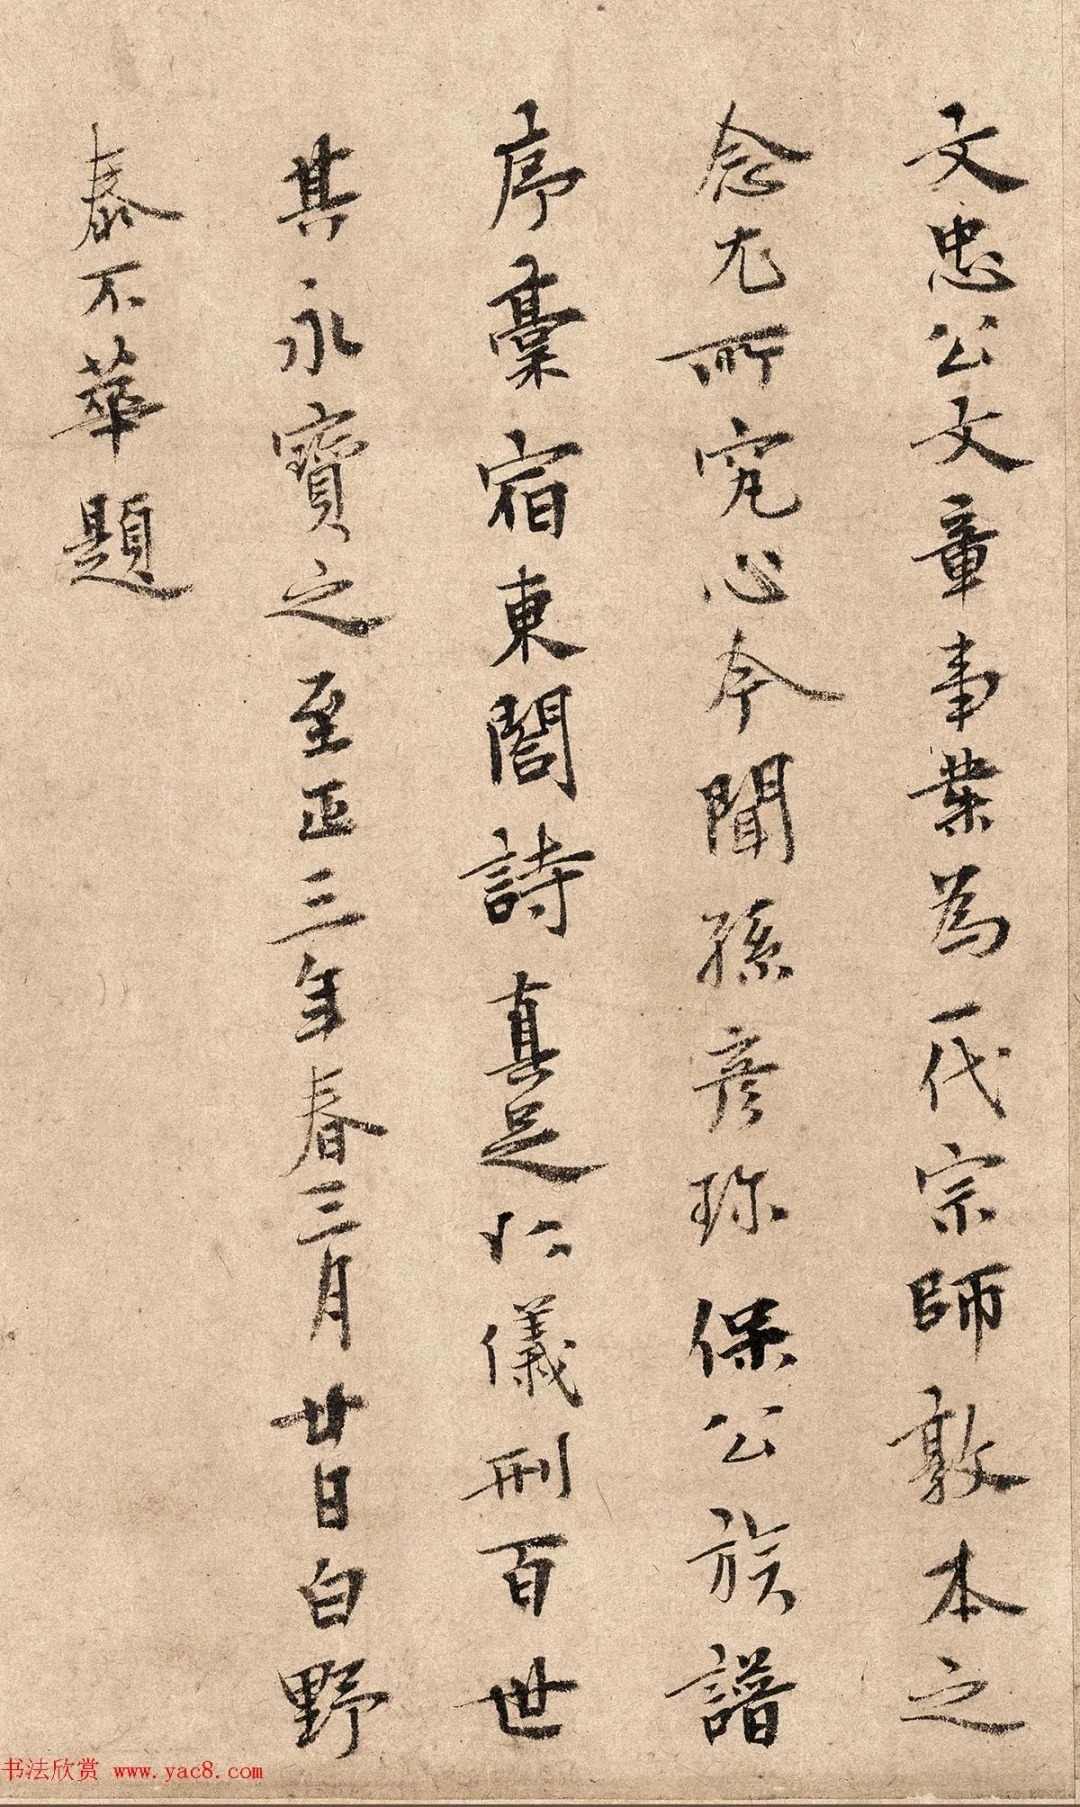 文忠公文章事業為一代宗師敦本之
念尤所究心今聞孫彦珎保公族譜
序藁宿東閤詩真足以儀刑百世
其永寶之至正三年春三月廿日白野
泰不華題
书法欣赏 www.yac8.com